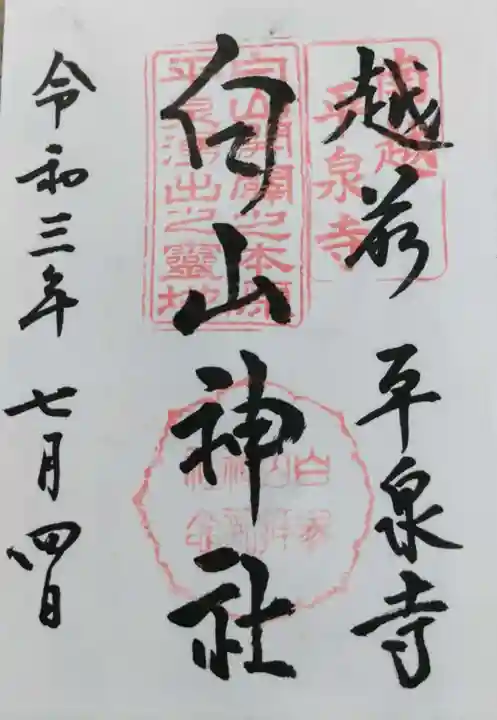 越前 平泉寺
白山神社
令和三年 七月四日
平泉寺
白山開闢之本源
平泉湧出之靈地